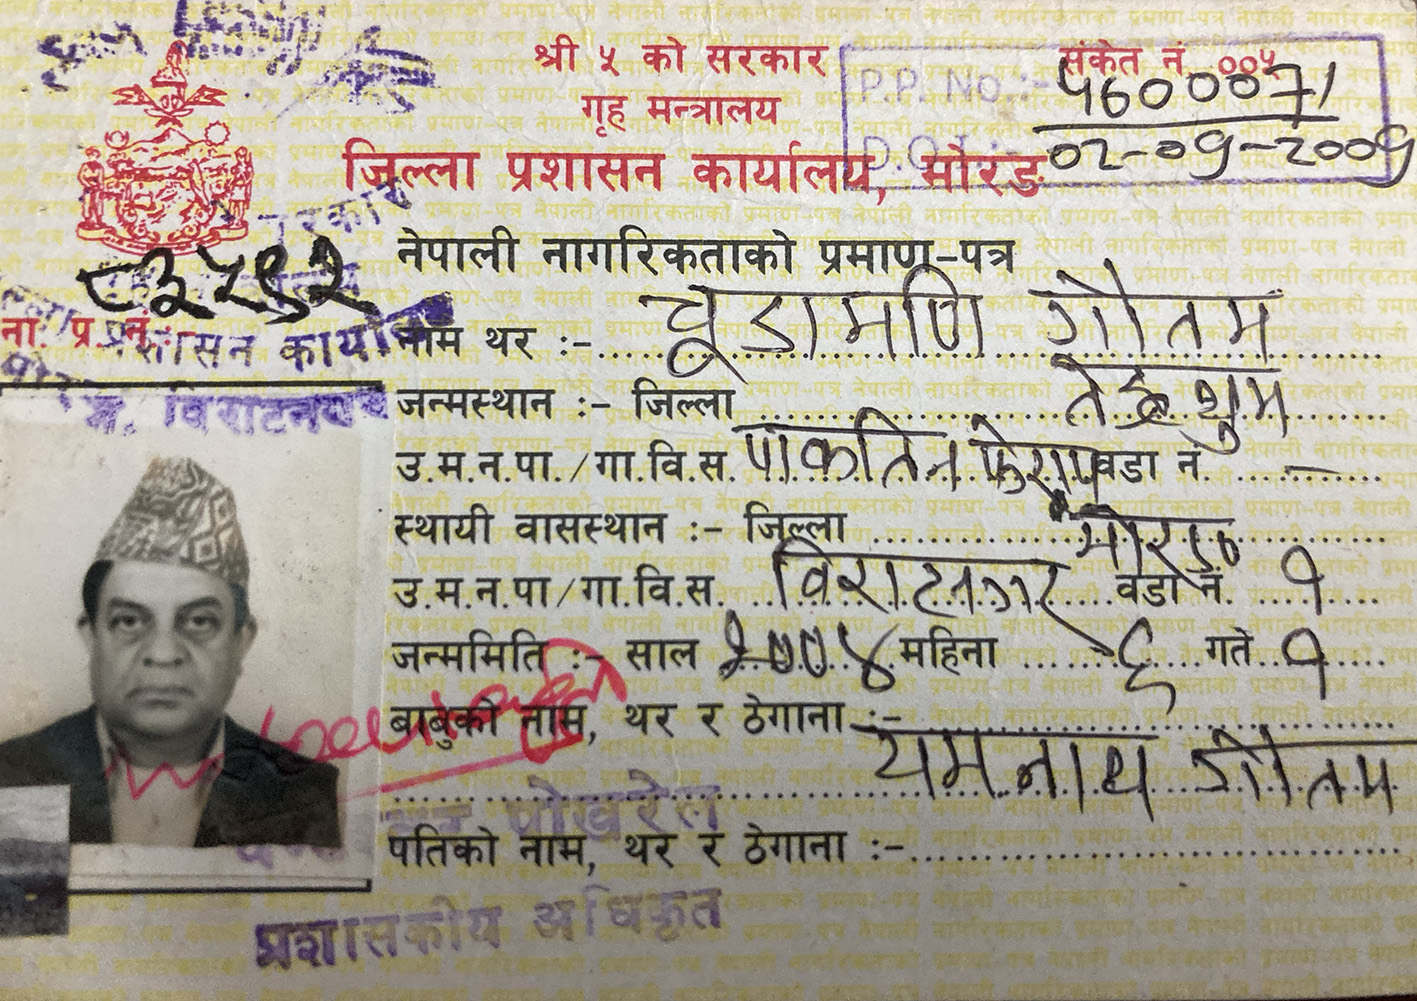 श्री ५ को सरकार
गृह मन्त्रालय
जिल्ला प्रशासन कार्यालय, मोरङ
संकेत नं ००५
P.P. No. :- 4600071
D.O.I :- 02-09-2009
नेपाली नागरिकताको प्रमाण-पत्र
८३५९२
ना. प्र. नं. :-
नाम थर :- चूडामणि गौतम
प्रशासन कार्यालय
विराटनगर
जन्मस्थान :- जिल्ला तेह्रथुम
उ.म.न.पा./गा.वि.स. पोकतिन फेराप वडा नं
स्थायी वासस्थान :- जिल्ला मोरङ
उ.म.न.पा/गा.वि.स. विराटनगर वडा नं. १
जन्ममिति :- साल २००४ महिना ६ गते १
बाबुको नाम, थर र ठेगाना :-
यमनाथ गौतम
पोखरेल
पतिको नाम, थर र ठेगाना :-
प्रशासकीय अधिकृत